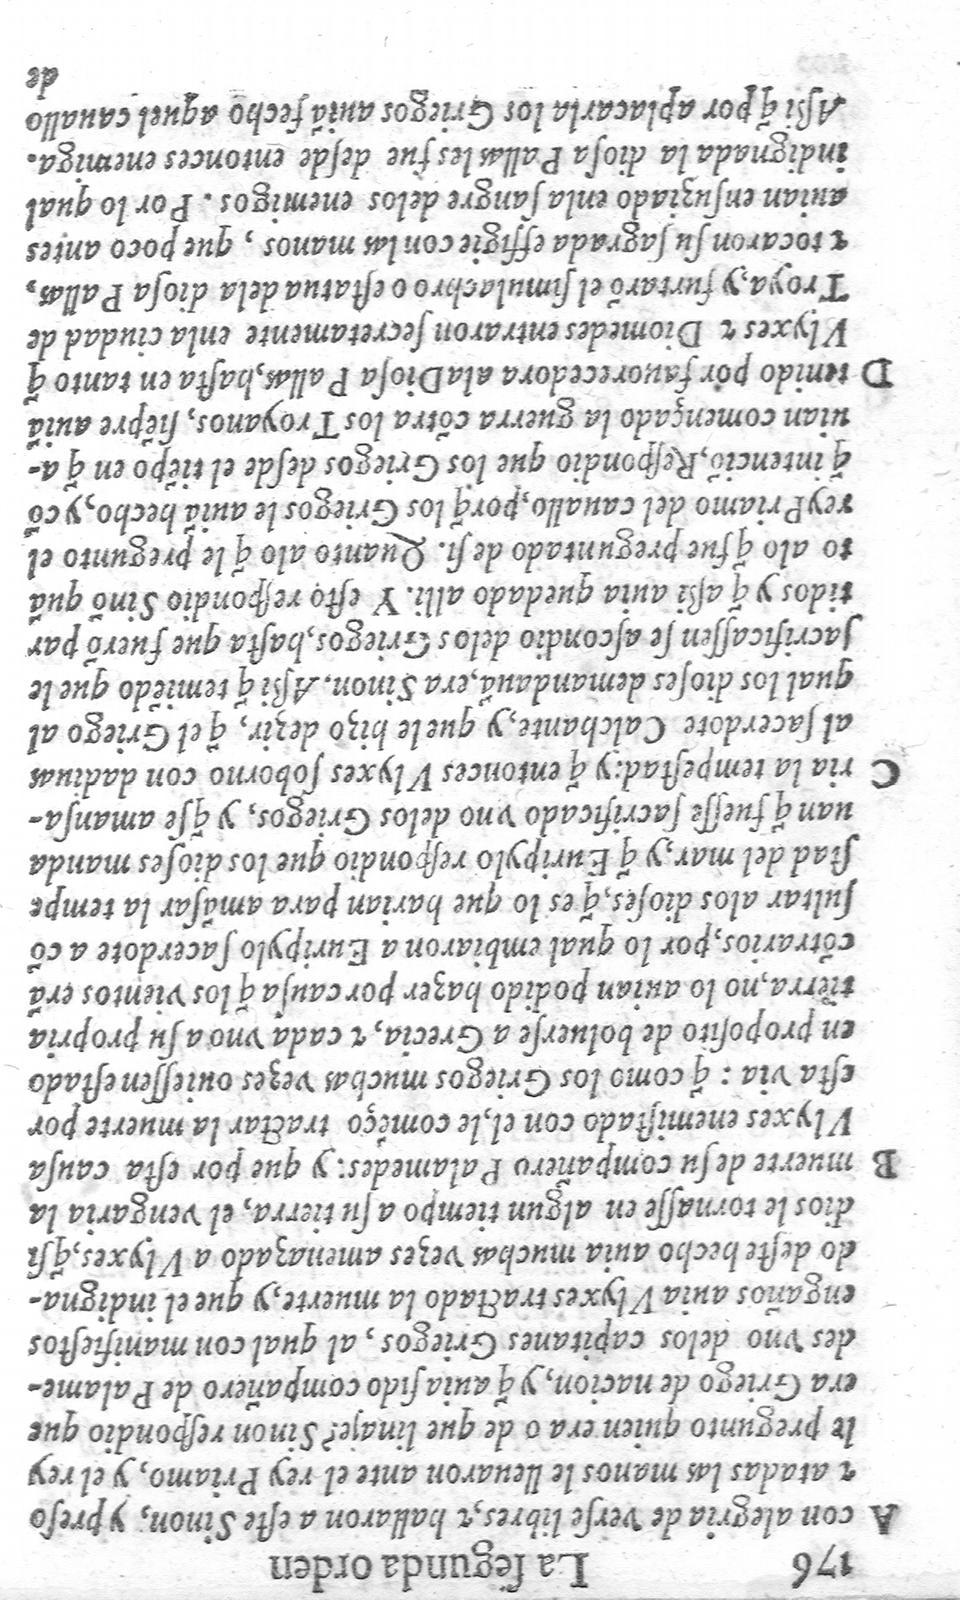 176 La segunda orden
A con alegria de verse libres, ꝛ hallaron a este Sinon, y preso
ꝛ atadas las manos le lleuaron ante el rey Priamo, y el rey
le pregunto quien era o de que linaje? Sinon respondio que
era Griego de nacion, y q̃ auia sido compañero de Palame-
des vno delos capitanes Griegos, al qual con manifiestos
engaños auia Vlyxes tractado la muerte, y que el indigna-
do deste hecho auia muchas vezes amenazado a Vlyxes, q̃ si
dios le tornasse en algun tiempo a su tierra, el vengaria la
B muerte de su compañero Palamedes: y que por esta causa
Vlyxes enemistado con el, le començo tractar la muerte por
esta via: q̃ como los Griegos muchas vezes ouiessen estado
en proposito de boluerse a Grecia, ꝛ cada vno a su propria
tierra, no lo auian podido hazer por causa q̃ los vientos erã
cõtrarios, por lo qual embiaron a Euripylo sacerdote a cõ
sultar alos dioses, q̃ es lo que harian para amãsar la tempe
stad del mar, y q̃ Euripylo respondio que los dioses manda
uan q̃ fuesse sacrificado vno delos Griegos, y q̃ se amansa-
C ria la tempestad: y q̃ entonces Vlyxes soborno con dadiuas
al sacerdote Calchante, y que le hizo dezir, q̃ el Griego al
qual los dioses demandauã, era Sinon. Assi q̃ temiẽdo que le
sacrificassen se ascondio delos Griegos, hasta que fuerõ par
tidos y q̃ assi auia quedado alli. Y esto respondio Sinõ quã
to alo q̃ fue preguntado de si. Quanto alo q̃ le pregunto el
rey Priamo del cauallo, porq̃ los Griegos le auiã hecho, y cõ
q̃ intenciõ, Respondio que los Griegos desde el tiẽpo en q̃ a-
uian començado la guerra cõtra los Troyanos, siẽpre auiã
D tenido por fauorecedora ala Diosa Pallas, hasta en tanto q̃
Vlyxes ꝛ Diomedes entraron secretamente enla ciudad de
Troya, y furtarõ el simulachro o estatua dela diosa Pallas,
ꝛ tocaron su sagrada effigie con las manos, que poco antes
auian ensuziado enla sangre delos enemigos. Por lo qual
indignada la diosa Pallas les fue desde entonces enemiga.
Assi q̃ por aplacarla los Griegos auiã fecho aquel cauallo
de